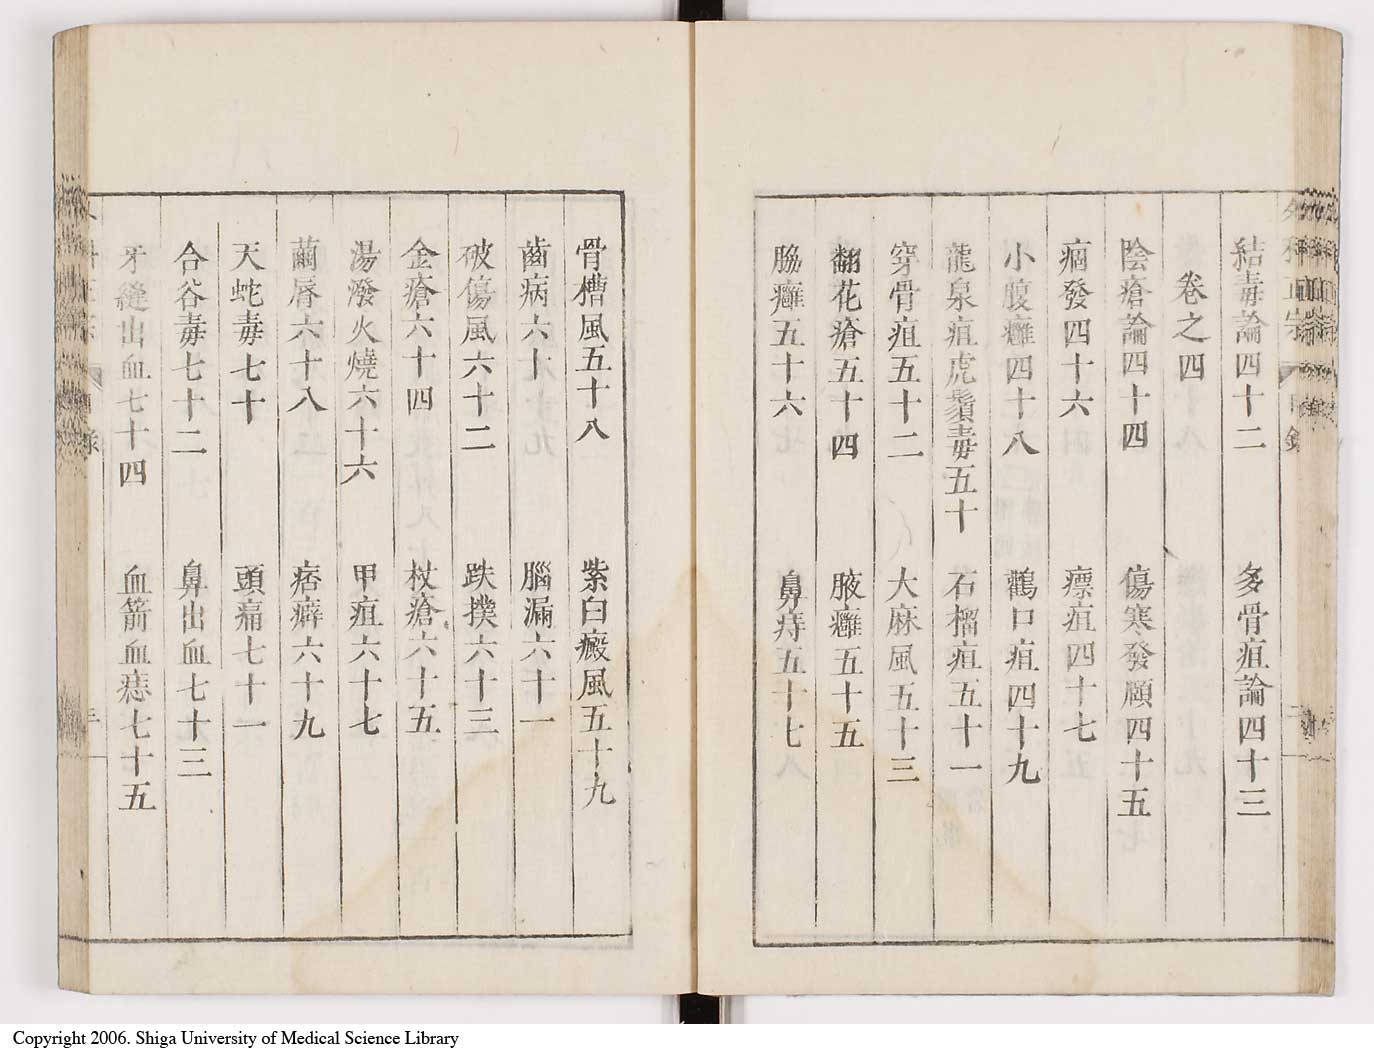 結毒論四十二 多骨疽論四十三
卷之四
陰瘡論四十四 傷寒發頤四十五
痼發四十六 瘭疽四十七
小腹癰四十八 鸛口疽四十九
龍泉疽虎鬚毒五十 石榴疽五十一
穿骨疽五十二 大麻風五十三
翻花瘡五十四 腋癰五十五
脇癰五十六 鼻痔五十七
骨槽風五十八 紫白癜風五十九
齒病六十 腦漏六十一
破傷風六十二 跌撲六十三
金瘡六十四 杖瘡六十五
湯潑火燒六十六 甲疽六十七
繭唇六十八 痞癖六十九
天蛇毒七十 頭痛七十一
合谷毒七十二 鼻出血七十三
牙縫出血七十四 血箭血痣七十五
Copyright 2006. Shiga University of Medical Science Library